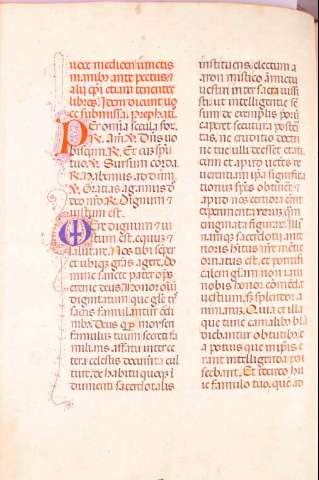 uoce mediocri iunctis
manib; ante pectus &
alii ep̄i etiam tenentes
libros. Item dicunt uo
ce submissa. Prephatio.
PEr omnia secula
R. am̄. V. Dn̄s uo
biscum. R. Et cū spiri
tu tuo. V. Sursum corda.
R. Habemus ad dn̄m.
V. Gratias agamus
deo nr̄o. R. Dignum &
iustum est.
VEre dignum & iu
stum est. equum &
salutare. Nos tibi semper
et ubique gr̄as agere. Do
mine sancte pater
eterne deus. honor oīuȝ
dignitatum que
sacris famulantur ordi
nibꝫ. Deus qui moysen
famulum tuum secreti fa
miliaris affatu inter ce
tera celestis documenta cul
ture. de habitu quoque i
dumenti sacerdotalis
instituens. electum a
aron mistico amictu
uestiri inter sacra iussi
sti. ut intelligentie sē
sum de exemplis priorū
caperet secutura posteri
tas. ne eruditio doctri
ne tue ulli deesset etati.
cum et apud ueteres re
uerentiam ipsa significa
tionum spēs obtineret. &
apud nos certiora eēnt
experimenta rerum quam
enigmata figurarum. Illi
namque sacerdotii ante
rioris hitus nr̄e mentis
ornatus est. et pontifi
calem glām non iam
nobis honor cōmendat
uestium. sed splendor a
nimarum. Quia et illa
que tunc carnalibus blā
diebantur obtutibus. e
a potius que in ipsis e
rant intelligenda pos
cebant. Et idcirco hu
ic famulo tuo. quem ad